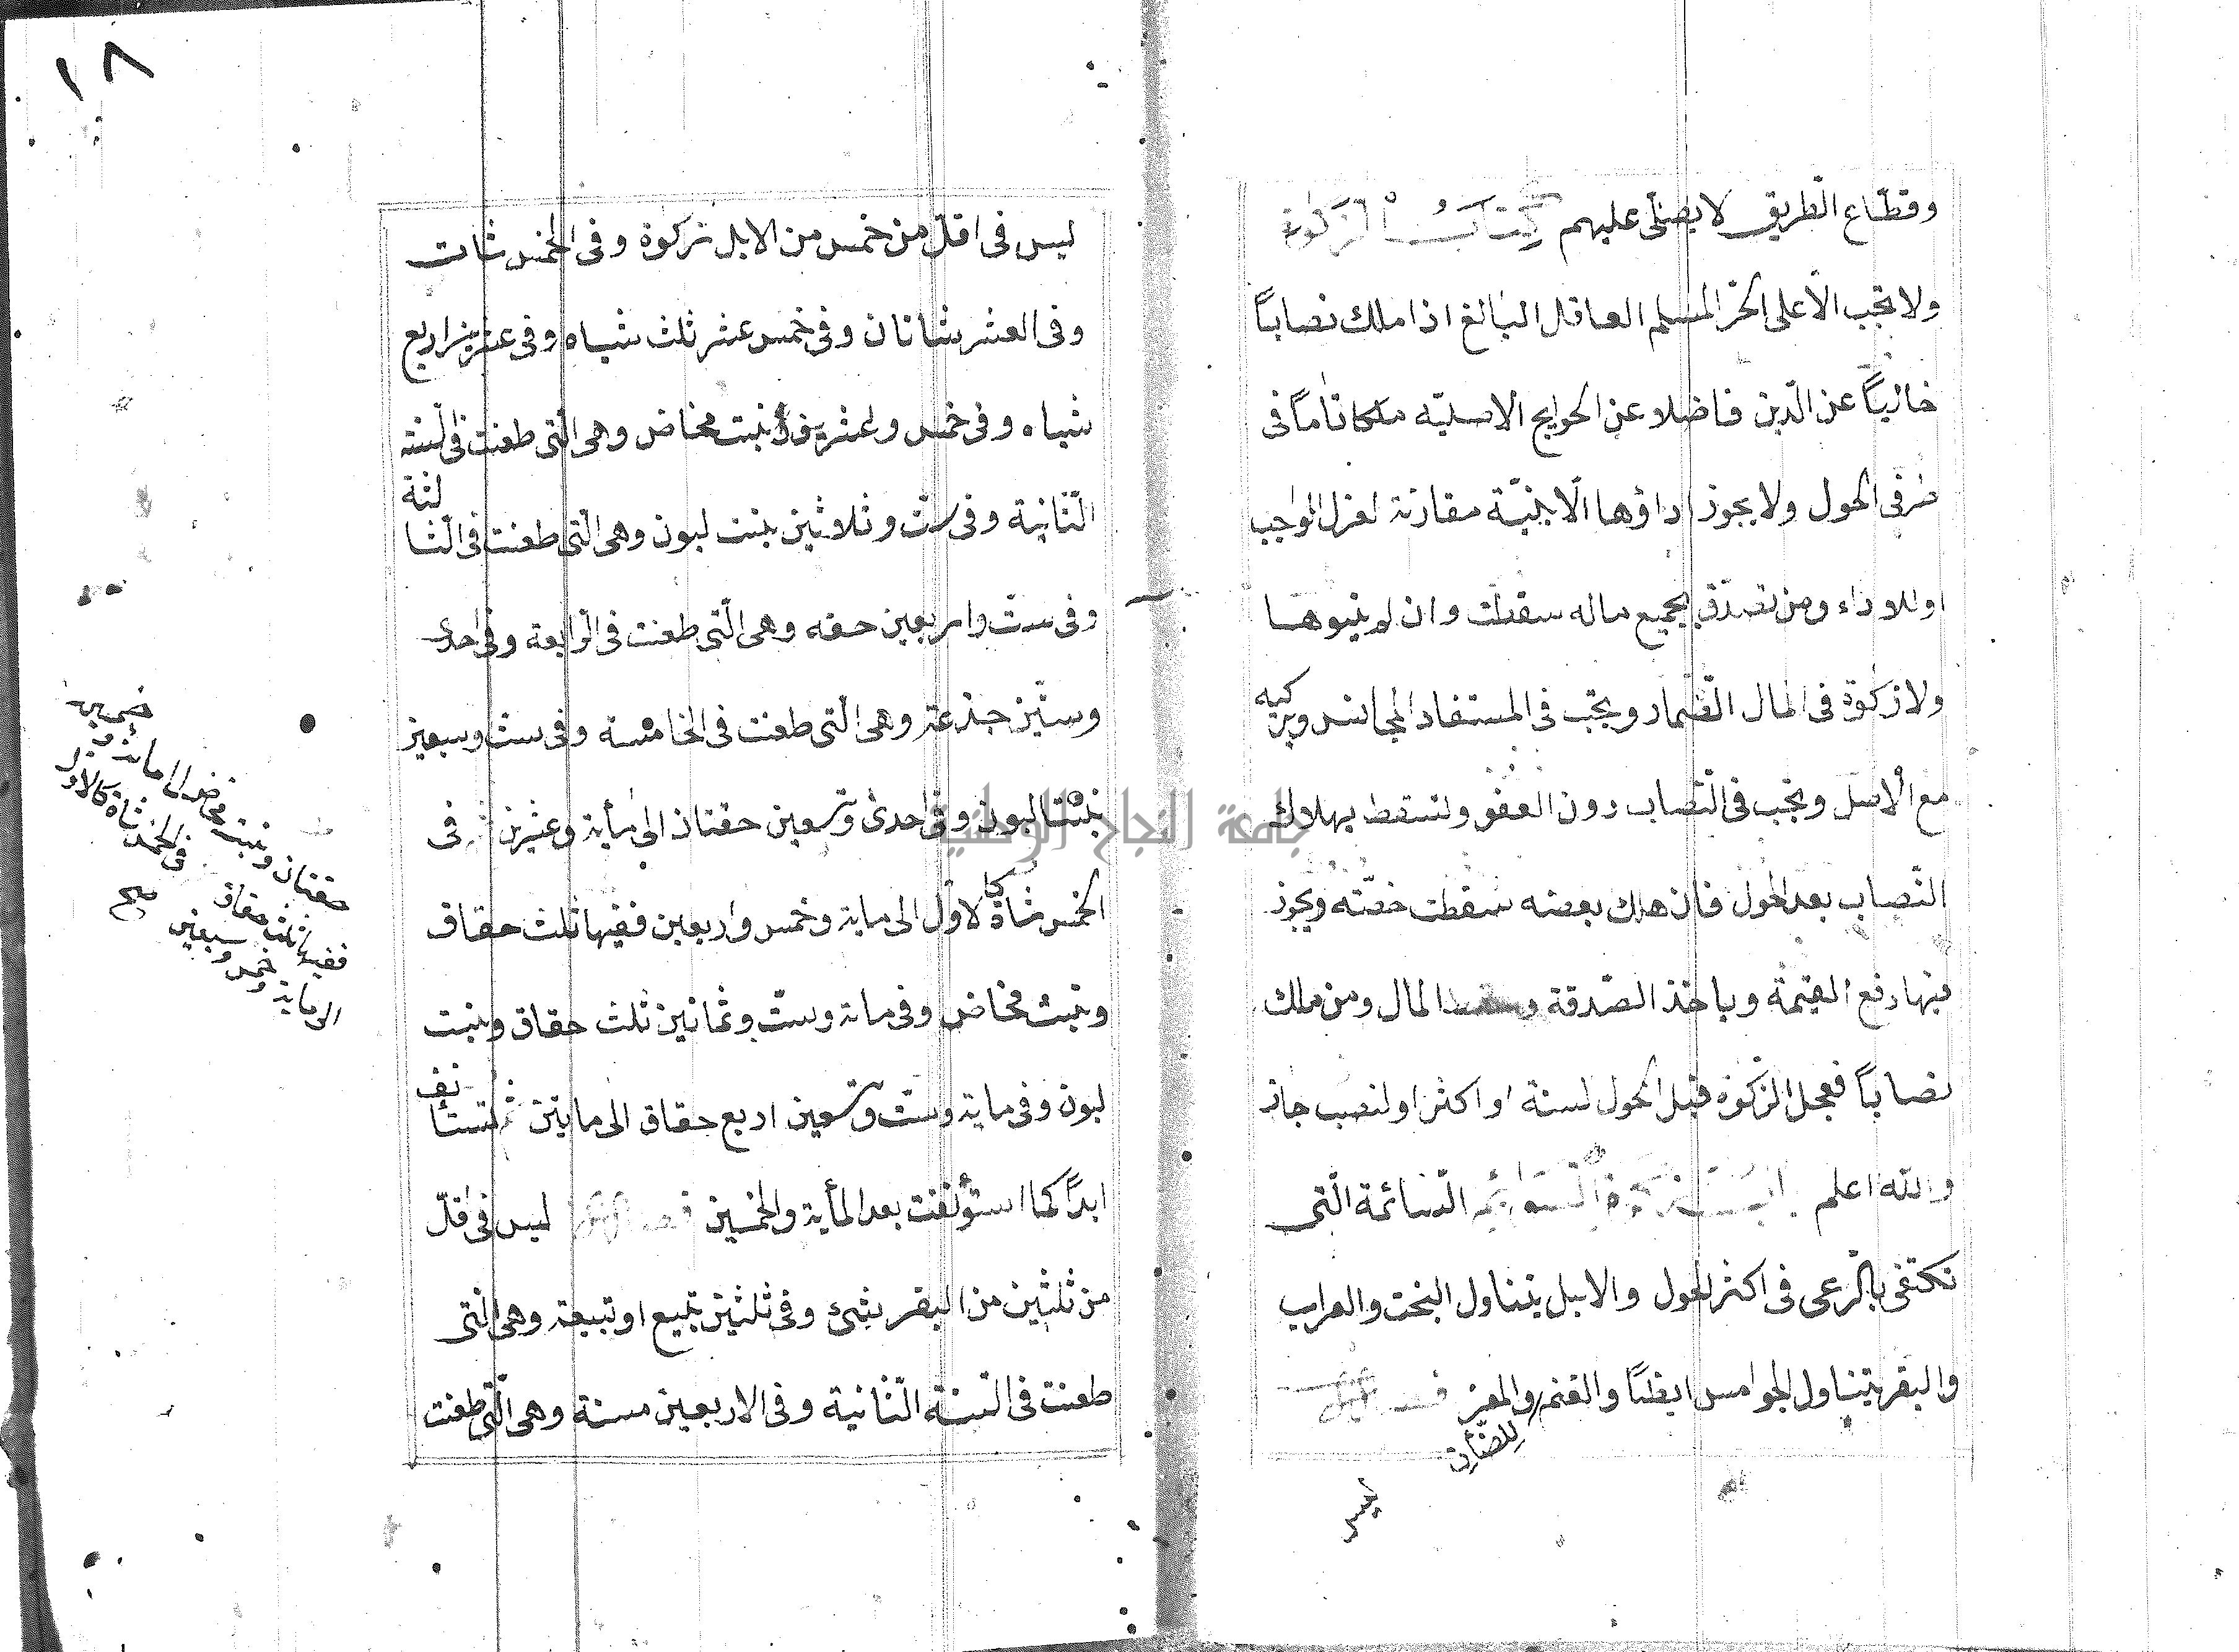 وقطّاع الطريق لا يصلّى عليهم كتاب الزكوة
ولا تجب الا على الحرّ المسلم العاقل البالغ اذا ملك نصاباً
خالياً عن الدّين فاضلا عن الحوايج الاصليّه ملكا تاماً فى
طرفى الحول ولا يجوز اداؤها الّا بنيّة مقارنة لعزل الواجب
او للاداء ومن تصدّق بجميع ماله سقطت وان لم ينوها
ولا زكوة فى المال الضّمار وتجب فى المستفاد المجانس ويزكيه
مع الاصل وتجب فى النّصاب دون العفو وتسقط بهلاك
النّصاب بعد الحول فان هلك بعضه سقطت حصّته ويجوز
فيها دفع القيمة وياخذ الصّدقة المال ومن ملك
نصاباً فعجل الزكوة قبل الحول لسنة او اكثر او لنصب جاز
والله اعلم باب زكوة السّوايم السّائمة الّتى
تكتفى بالرعى فى اكثر الحول والابل يتناول البخت والعراب
والبقر يتناول الجوامس ايضاً والغنم والمعز فصل
للضّأن
ليس
١٨
ليس فى اقلّ من خمس من الابل زكوة وفى الخمس شات
وفى العشر شاتان وفى خمس عشر ثلث شياه وفى عشرين اربع
شياه وفى خمس وعشرين بنت مخاض وهى الّتى طعنت فى السّنة
الثّانية وفى ستّ وثلاثين بنت لبون وهى الّتى طعنت فى الثّالثة
وفى ستّ واربعين حقه وهى الّتى طعنت فى الرّابعة وفى احدى
وستّين جذعة وهى الّتى طعنت فى الخامسة وفى ست وسبعين
بنتا لبون وفى احدى وتسعين حقتان الى مأية وعشرين ثم فى
الخمس شاة كالاوّل الى ماية وخمس واربعين ففيها ثلث حقاق
وبنت مخاض وفى ماية وستّ وثمانين ثلث حقاق وبنت
لبون وفى ماية وستّ وتسعين اربع حقاق الى مايتين ثم تستأنف
ابدًا كما استؤنفت بعد المأية والخمسين فصل ليس فى اقلّ
من ثلثين من البقر شئ وفى ثلثين تبيع او تبيعة وهى الّتى
طعنت فى السّنة الثّانية وفى الاربعين مسنة وهى الّتى طعنت
حقتان وبنت مخاض الى ماية و خمسين
ففيها ثلث حقاق فى الخمس شاة كالاول
الى ماية وخمس وسبعين صح
جامعة النجاح الوطنية